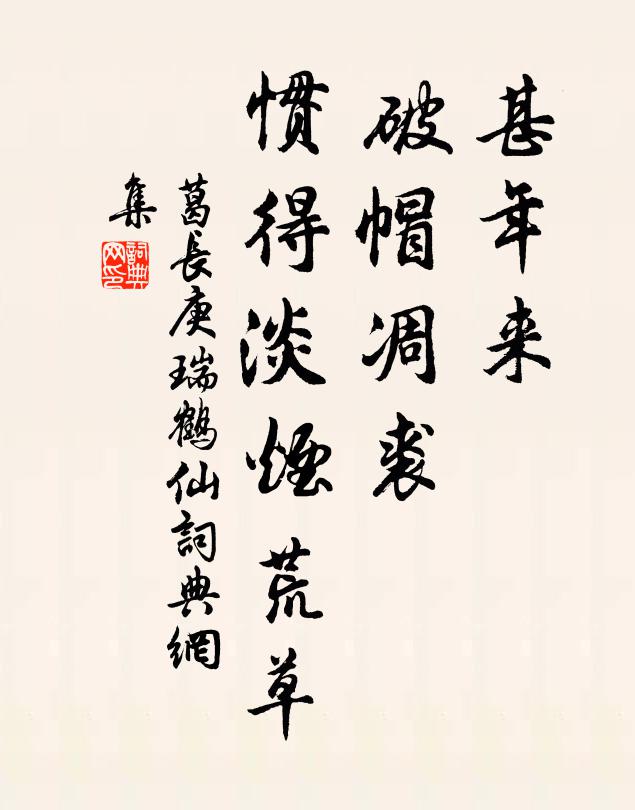 甚年来
破帽凋裘
惯得淡煙荒草
葛長庚瑞鶴仙詞典網
集
詞典
网印